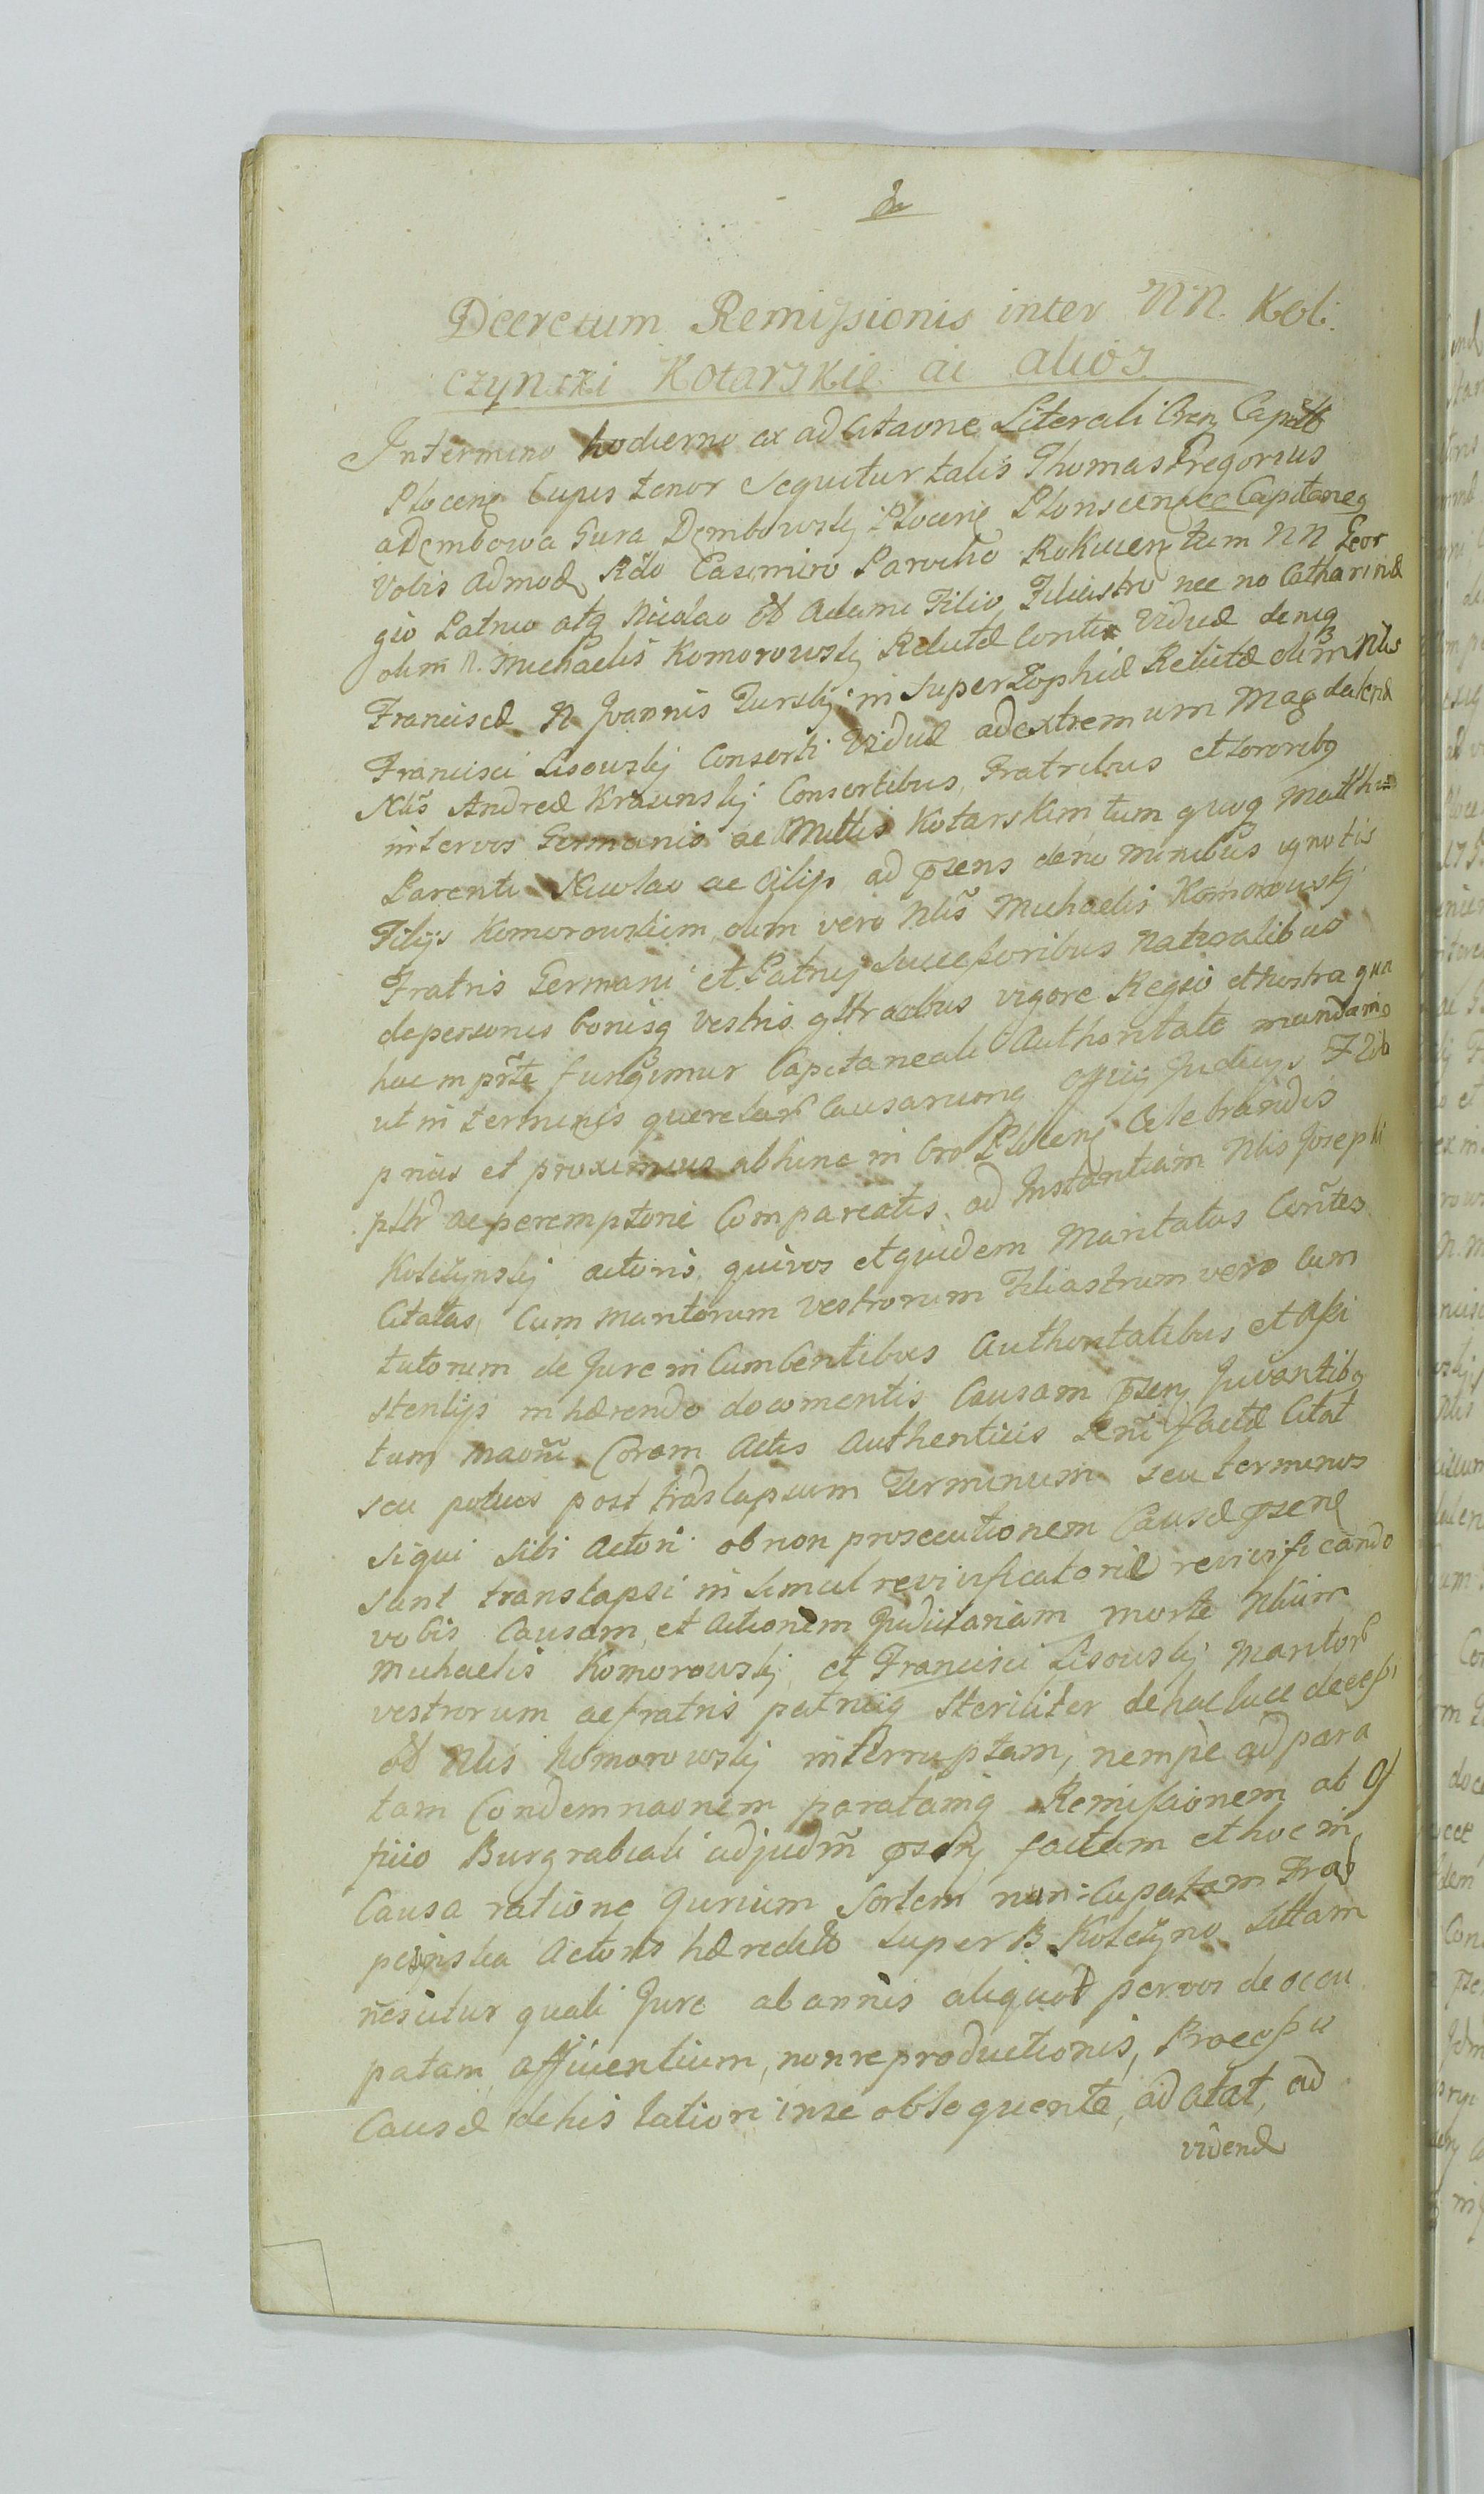 Decretum Remissionis inter NN. Kol:
czynski Kotarskie ac alios
In termino hodierno ex ad Citaone Literali Cren Capit
Plocen Cujus tenor sequitur talis Thomas Gregorius
a Dembowa Gura Dembowsky Plocen Plonscen Capitaneq
Vobis admod Rdo Casimiro Parocho tum NN Geor
gio Patruo atq Nicolao Adami Filio, Filiastro nec no Catharinæ
olim N. Michaelis Komorowsky Relictæ Viduæ deniq
Franciscæ N Joannis Turskij in super Zophiæ Relictæ olim Nlis
Francisci Lisowskij Consorti Viduæ ad extremum Magdalenæ
Nlis Andreæ Kraiinskij Consortibus, Fratribus et sororibq
inter vos Germanis ac Kotarskim tum quoq Matthiæ
Parenti Nicolao ac Aliis ad pzens de no minibus ignotis
Filijs Komorowskim, olim vero Nlis Michaelis Komorowskij
Fratris Germani et Patruj Successoribus Naturalibus
de personis bonisq vestris gltradbus vigore Regio et nostra qua
hac in prte fungimur Capitaneali Authoritate mandamq
ut in terminis querelar Causarumq Officij Judicijs
prius et proximius abhinc in Cro Plocen Celebrandis
pltr ac peremptorie Compareatis ad Instantiam Nlis Josephi
Kolczynskij actoris qui vos et quidem Maritatas Contes
Citatas, Cum Maritorum vestrorum Filiastrum vero Cum
tutorum de Jure in Cumbentibus Authoritatibus et Assi
stentijs in hærendo documentis Causam pzen Juvantibq
tum Coram Actis Authenticis factæ Citat
seu potius post translapsum Terminum seu terminos
si qui sibi Actori ob non prosecutionem Causæ pzen
sunt translapsi in simul revivificatoriæ revivificando
vobis Causam, et Actionem Judiciariam morte Nlium
Michaelis Komorowskij et Francisci Lisowskij Maritor
vestrorum ac fratris patruiq steriliter de hac luce decess
Nlis Komorowskij interruptam, nempe ad para
tam Condemnaonem paratamq Remissionem ab Of
ficio Burgrabiali adjudm pzen factam et hoc in
Causa ratione qurium Sortem nun-Cupatam Frad
Actoris hæredit super B Kolczyno sittam
nescitur quali Jure ab annis aliquot per vos de occu
patam, afficientium, non reproductionis, Processu
Causæ de his latiori in se obloquente, ad Citat, ad
videnđ